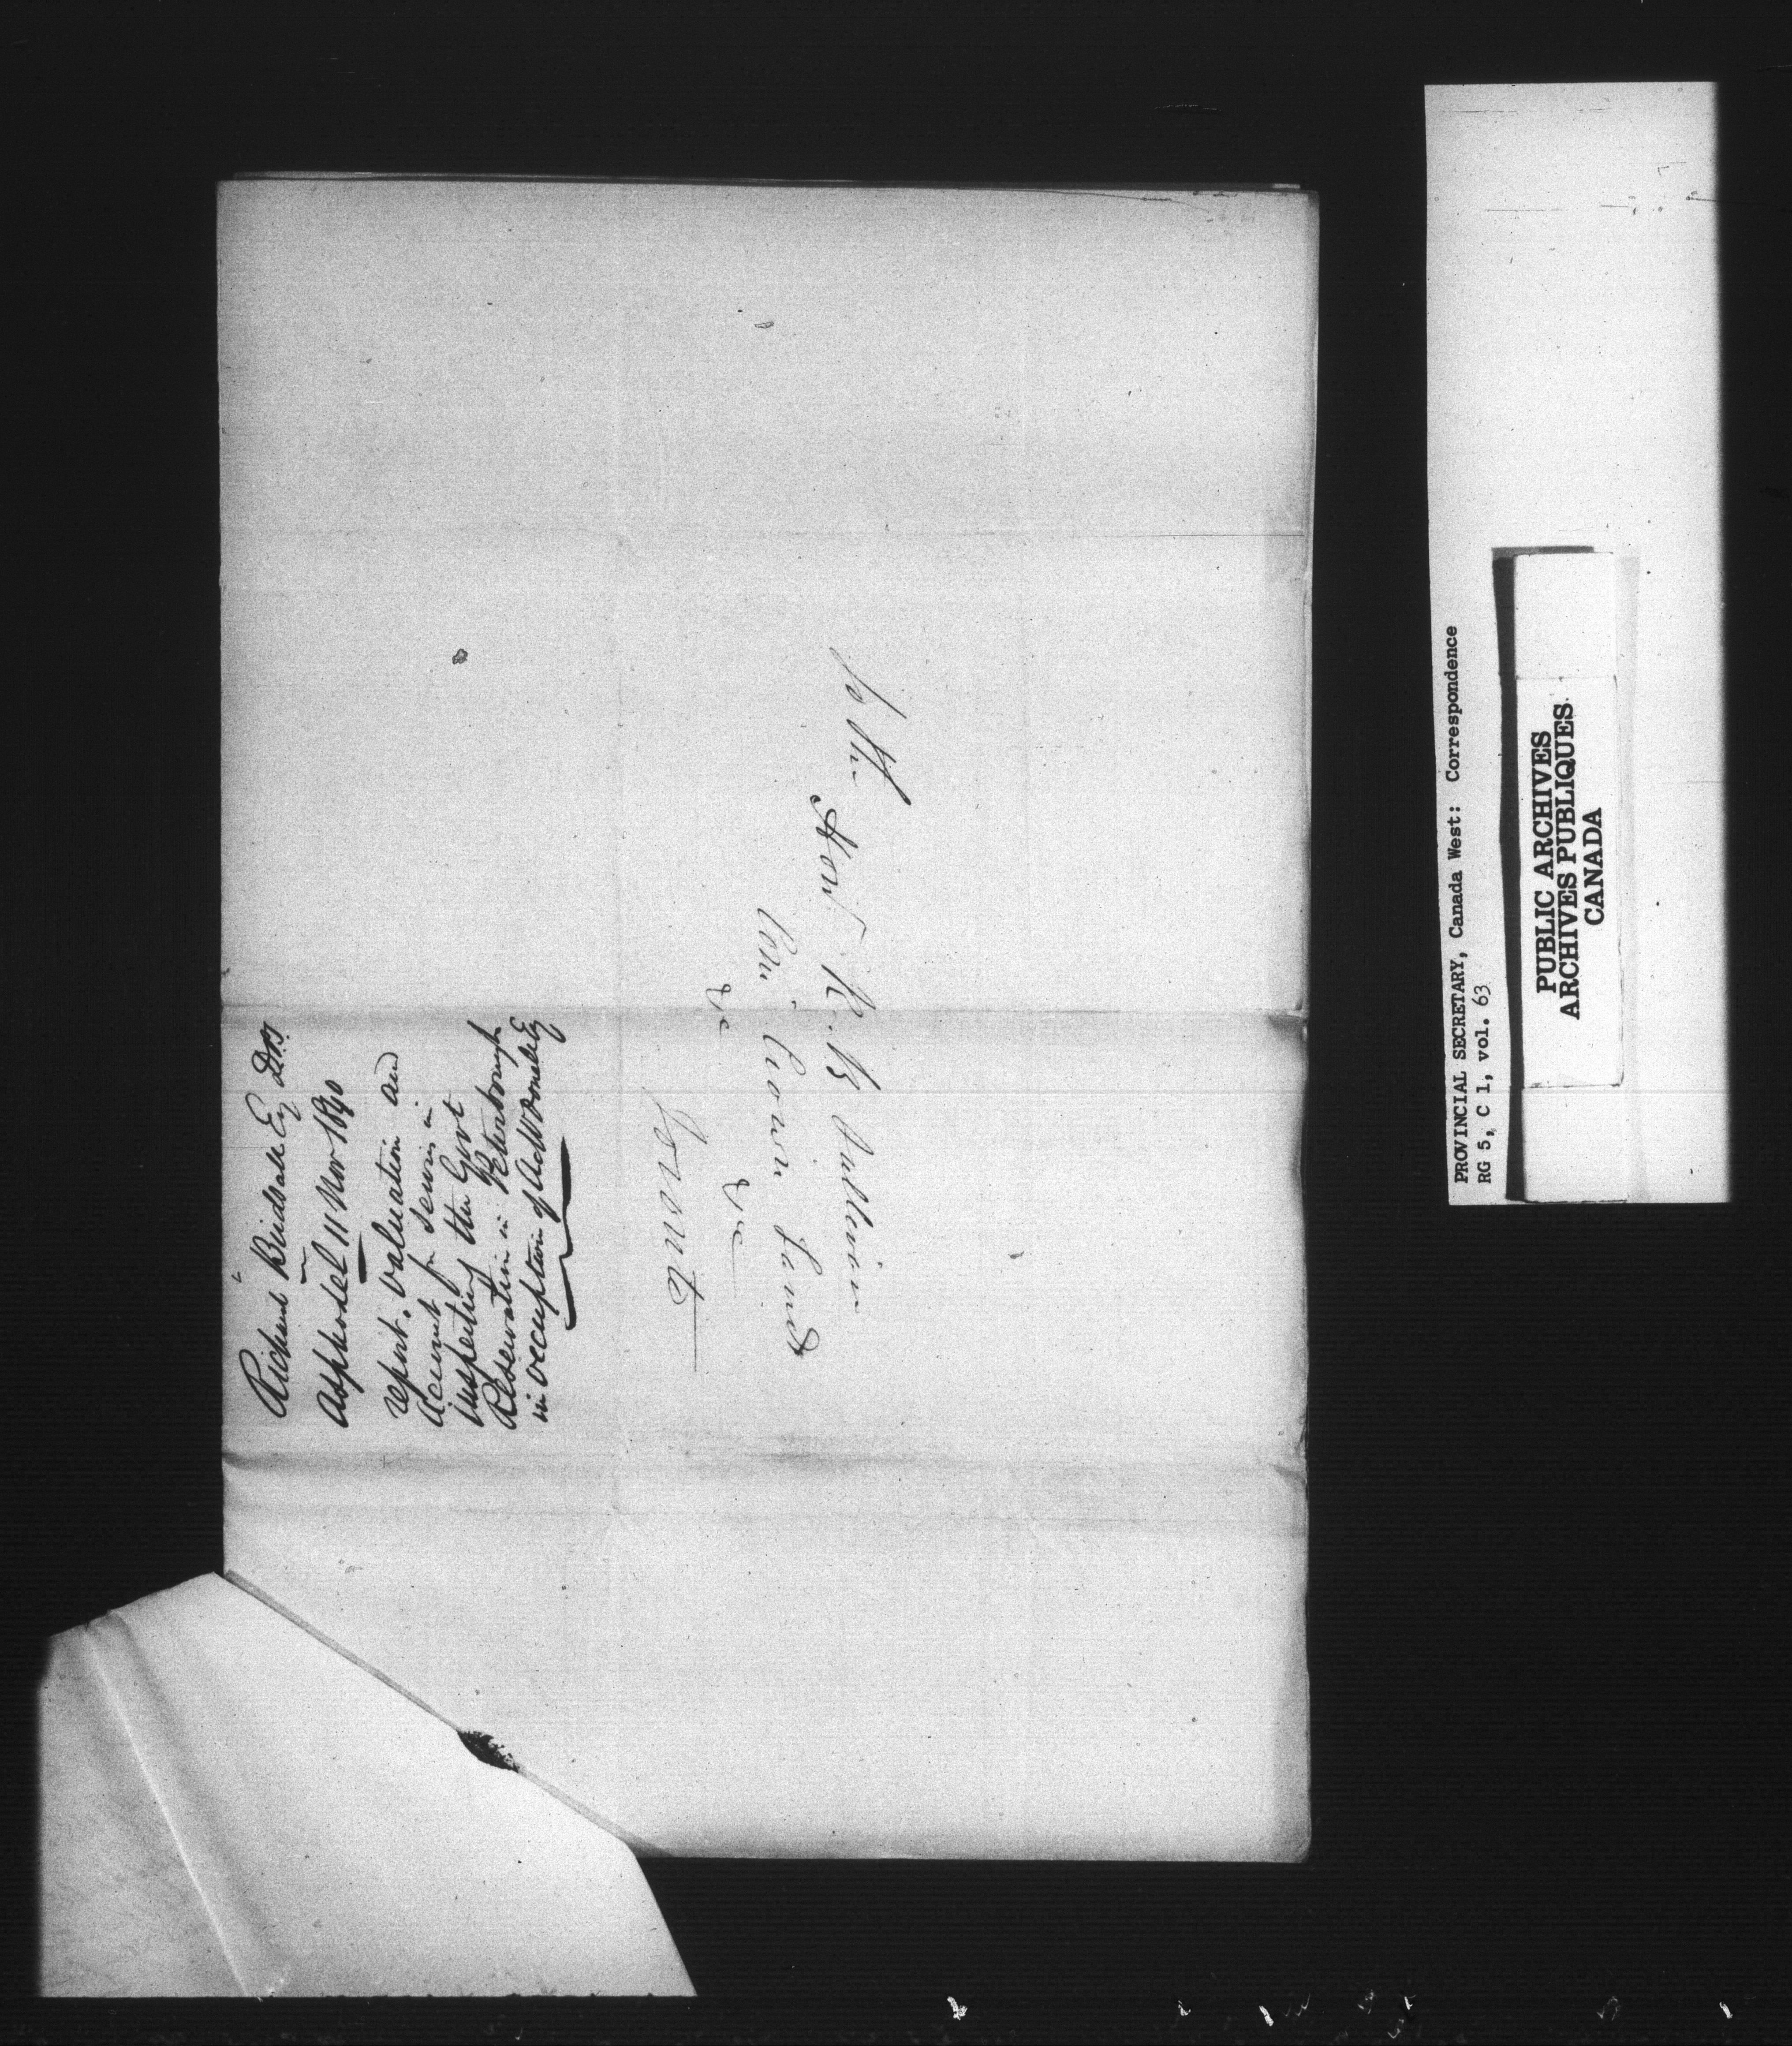 Richard Birdsall Esq D.P.S.
Asphodel 11 Nov 1840
report. valuation and
Account for services in
inspecting the Govt
Reservation in Peterborough
in occupation of A McDonell Esq
To The
Honl R. B Sullivan
Com. Crown Lands
&c &c
Toronto
PROVINCIAL SECRETARY, Canada West: Correspondence
RG 5, C 1, vol. 63
PUBLIC ARCHIVES
ARCHIVES PUBLIQUES
CANADA